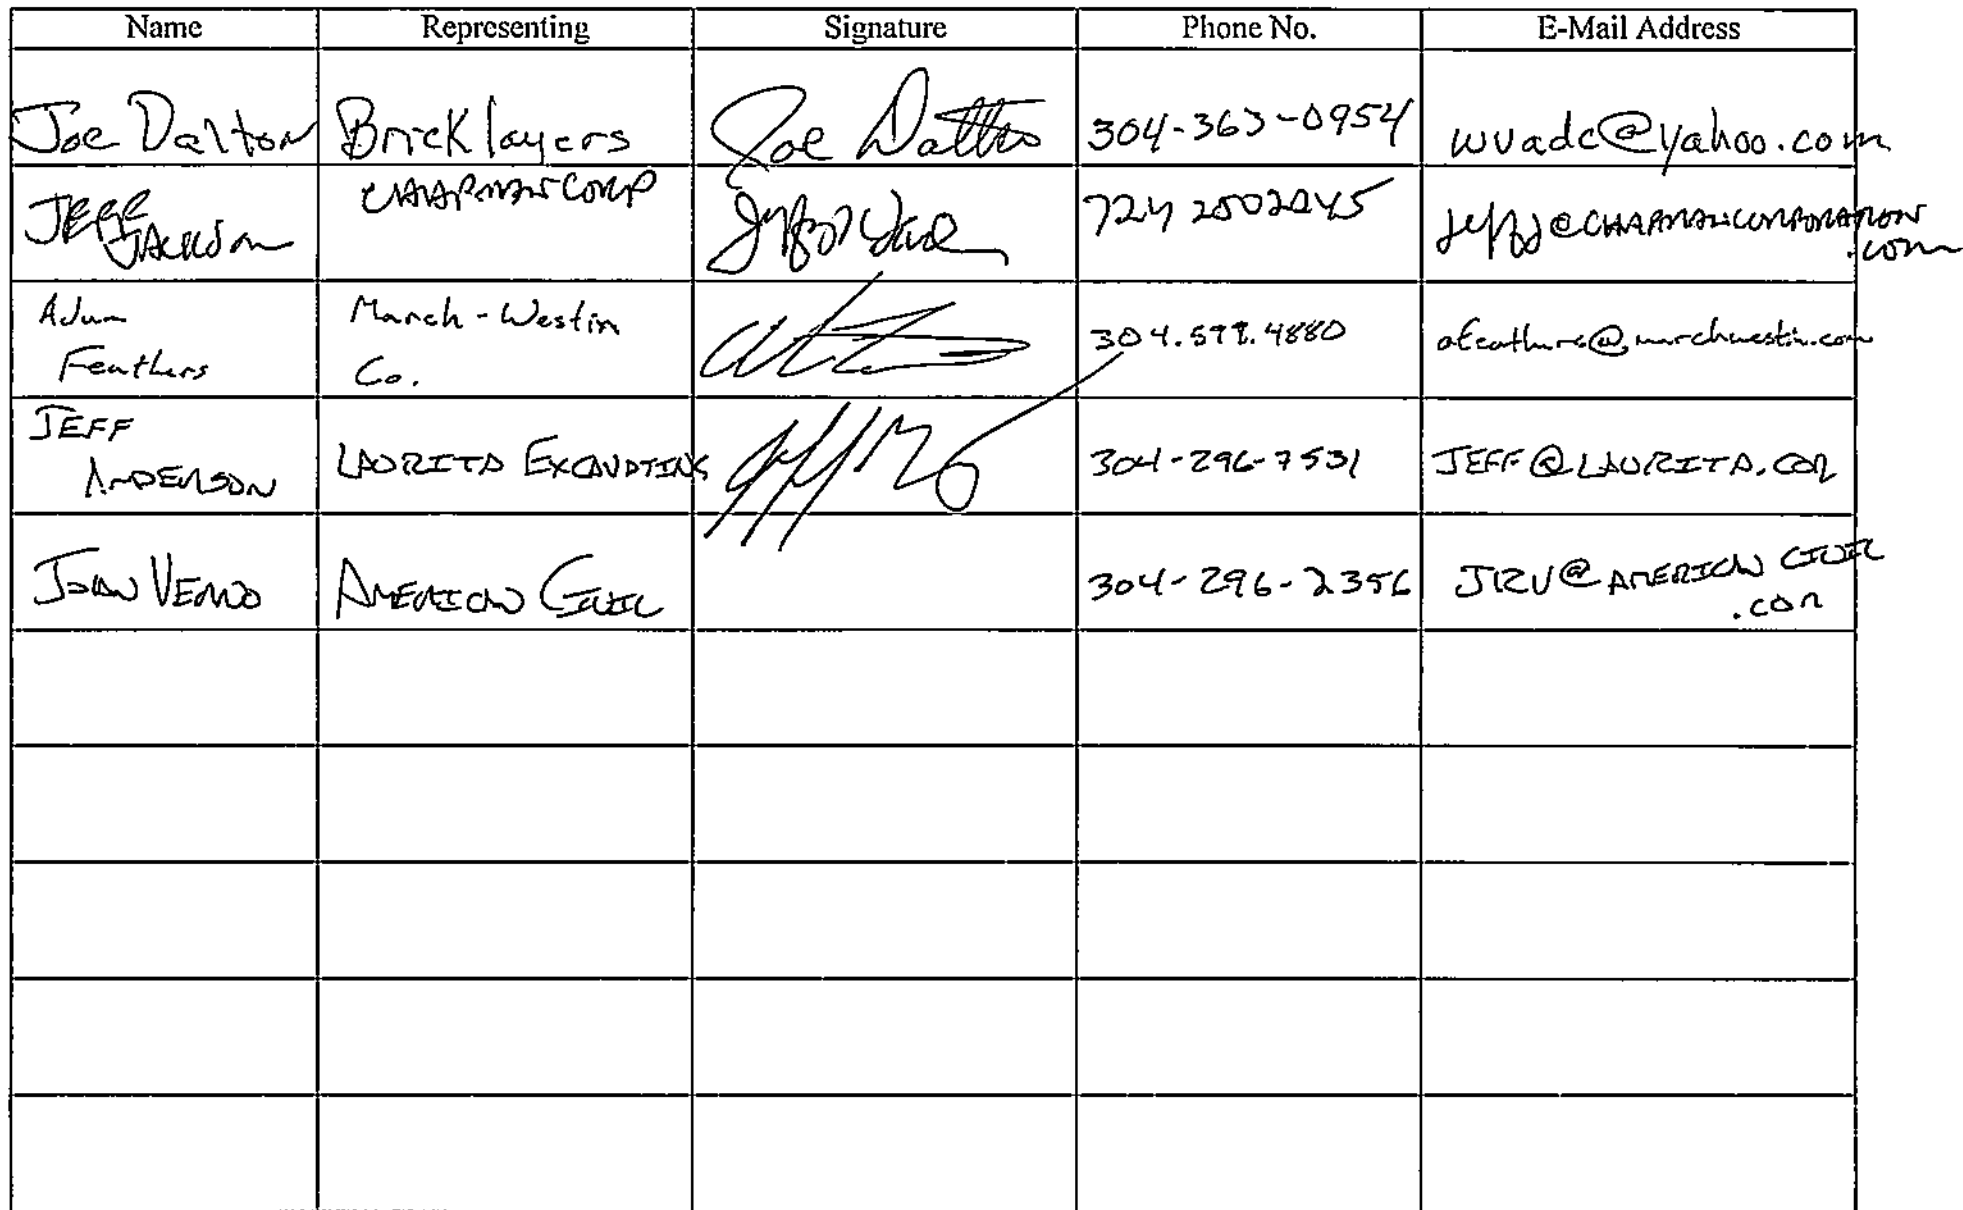 Name Representing Signature Phone No. E-Mail Address
Joe Dalton Bricklayers Joe Dalton 304-363-0954 wvadc@yahoo.com
JEFF CHAPMAN CORP 724 2502245 jeffj@CHAPMANCORPORATION
JACKSON .com
Adam March-Westin 304.599.4880 afeathers@marchwestin.com
Feathers Co.
JEFF
ANDERSON LAURITA EXCAVATING 304-296-7531 JEFF@LAURITA.COM
JOHN VERNO AMERICAN CIVIL 304-296-2356 JRV@AMERICAN CIVIL
.com